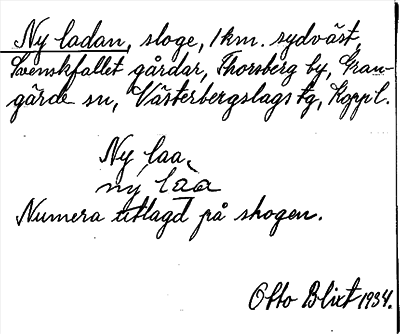 Ny ladan, sloge, 1 km. sydväst,
Svenskfallet gårdar, Thorsberg by, Gran-
gärde sn, Västerbergslags tg, Koppl.
Ny laa
ny laa
Numera utlagd på skogen.
Otto Blixt 1934.